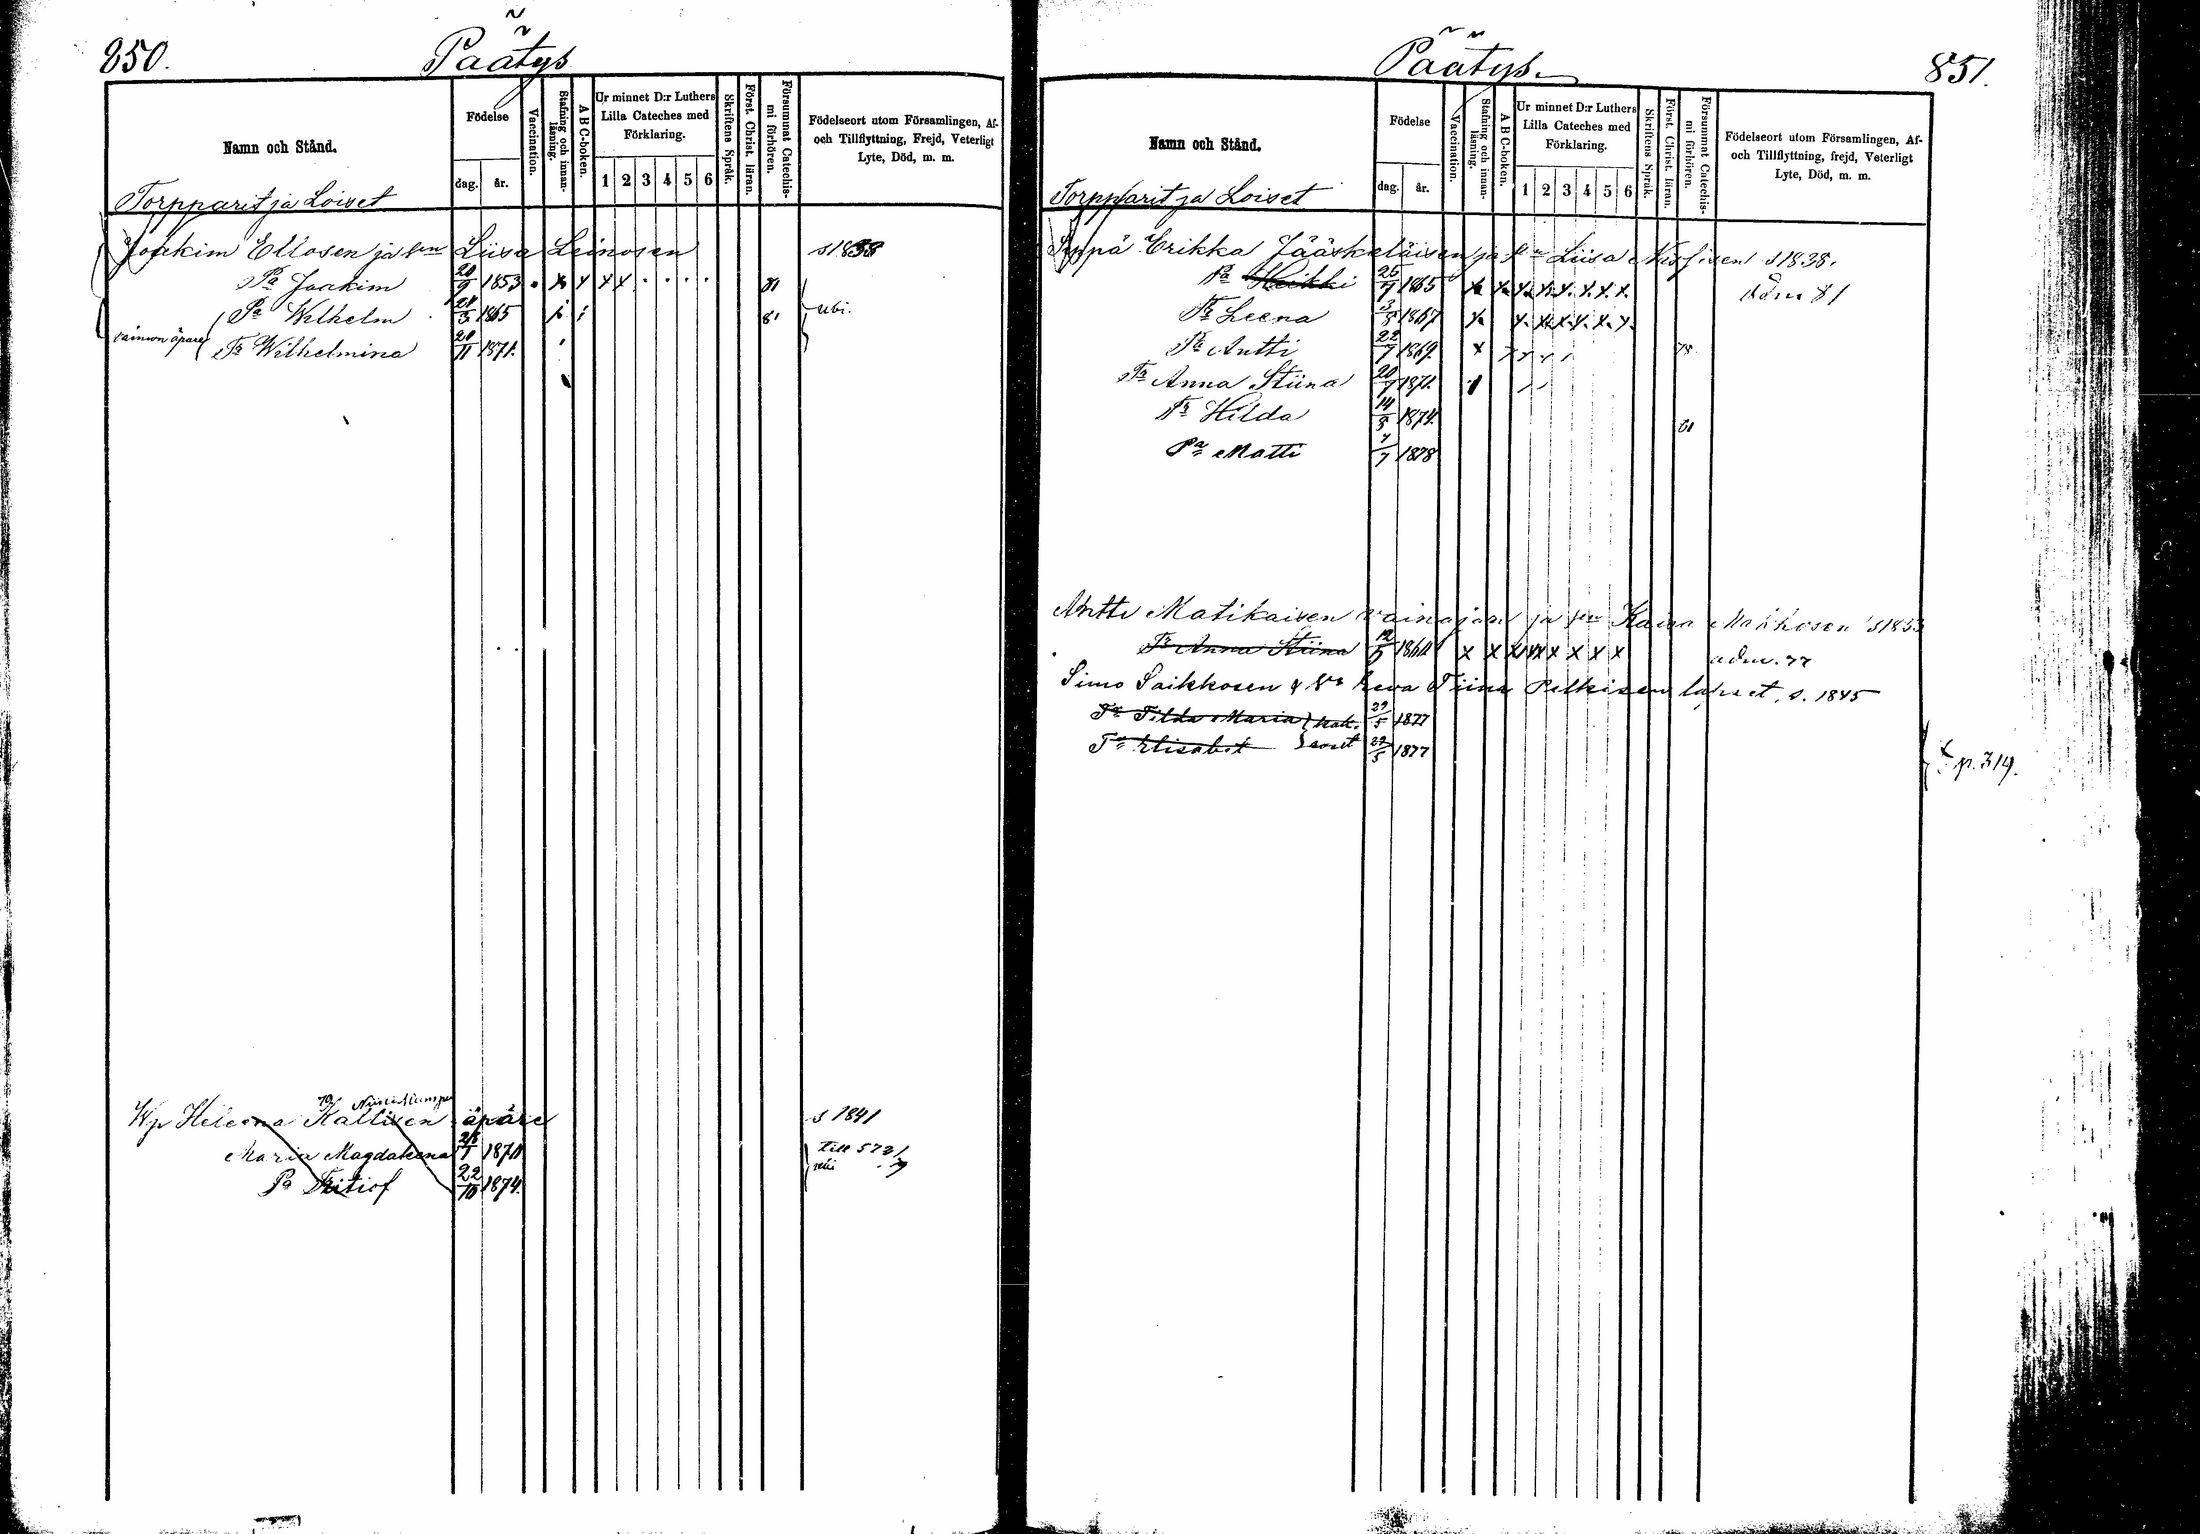 850.
Päätys
Namn och Stånd.
Födelse
dag.
år.
Vaccination.
Stafning och innan-läsning.
A B C-boken.
Ur minnet D:r Luthers Lilla Cateches med Förklaring.
1 2 3 4 5 6
Skriftens Språk.
Först. Christ. läran.
Försummat Catechis-mi förhören.
Födelseort utom Församlingen, Af- och Tillflyttning, Frejd, Veterligt Lyte, Död, m. m.
Torpparit ja Loiset
Joakim Ellosen ja vm Liisa Leinosen s 1838
Pa Joakim 20/9 1853 x x x x 81
Pa Wilhelm 24/3 1865 81 ubi.
vaimon äpare
Tr Wilhelmina 20/11 1871.
Wp Heleena Kallisen äpäre s 1841
Maria Magdaleena 1870 till 572
Pa Fritiof 22/10 1874.
851.
Päätys.
Namn och Stånd.
Födelse
dag.
år.
Vaccination.
Stafning och innan-läsning.
A B C-boken.
Ur minnet D:r Luthers Lilla Cateches med Förklaring.
1 2 3 4 5 6
Skriftens Språk.
Först. Christ. läran.
Försummat Catechis-mi förhören.
Födelseort utom Församlingen, Af- och Tillflyttning, frejd, Veterligt Lyte, Död, m. m.
Torpparit ja Loiset
Seppä Erikka Jääskeläisen ja vm Liisa s 1838.
Pa Heikki 25/7 1865 x x x x x x x x adm 81
Tr Leena 3/8 1867 x x x x x x x
Pa Antti 22/7 1869. x x x x 78
Tr Anna Stiina 20/7 1871.
Tr Hilda 14/8 1874. 81
Pa Matti 7/7 1878
Antti Matikaisen vainajan ja vm Kaisa Makkosen s 1833
Tr Anna Stiina 1860 x x x x x x x x adm. 77
Simo Saikkosen & Vm Eeva Tiina Pelkisen lapset, s. 1845
Tr Tilda Maria kak- 29/5 1877
Tr Elisabet soset 29/5 1877
p. 319.